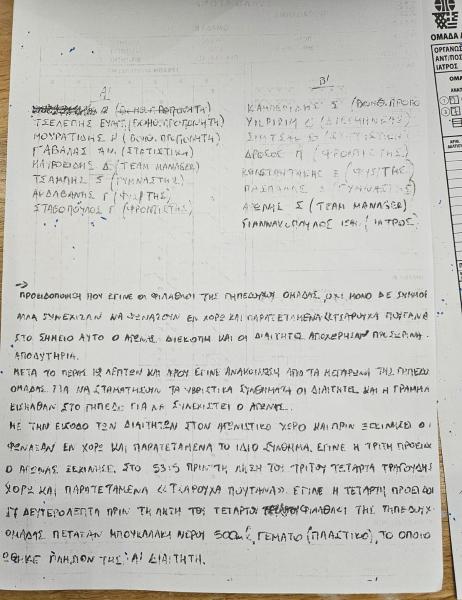 Α'
(ΒΟΗΘ. ΠΡΟΠΟΝΗΤΗ)
ΤΣΕΛΕΠΗΣ ΕΥΑΓ. (ΒΟΗΘ. ΠΡΟΠΟΝΗΤΗ)
ΜΟΥΡΑΤΙΔΗΣ Η (ΒΟΗΘ. ΠΡΟΠΟΝΗΤΗ)
ΓΑΒΑΛΑΣ ΑΝ. (ΣΤΑΤΙΣΤΙΚΑ)
Δ. (TEAM MANAGER)
ΤΣΑΜΠΗΣ Σ (ΓΥΜΝΑΣΤΗΣ)
Γ (ΦΥΣ/ΤΗΣ)
ΣΤΑΘΟΠΟΥΛΟΣ Γ (ΦΡΟΝΤΙΣΤΗΣ)
Β'
Σ (ΒΟΗΘ. ΠΡΟΠΟ
(ΔΙΕΡΜΗΝΕΑΣ)
(ΣΤΑΤΙΣΤΙΚΗ)
ΔΡΟΣΟΣ Π (ΦΡΟΝΤΙΣΤΗΣ)
ΚΩΝΣΤΑΝΤΑΚΗΣ Ξ (ΦΥΣ/ΤΗΣ)
(ΓΥΜΝΑΣΤΗΣ)
Σ (TEAM MANAGER)
ΓΙΑΝΝΑΚΟΠΟΥΛΟΣ (ΙΑΤΡΟΣ)
ΟΜΑΔΑ Α
ΟΡΓΑΝΩΣ
ΑΝΤ/ΠΟΣ
ΙΑΤΡΟΣ
ΠΡΟΕΙΔΟΠΟΙΗΣΗ ΠΟΥ ΕΓΙΝΕ ΟΙ ΦΙΛΑΘΛΟΙ ΤΗΣ ΓΗΠΕΔΟΥΧΟΥ ΟΜΑΔΑΣ, ΟΧΙ ΜΟΝΟ ΔΕ
ΑΛΛΑ ΣΥΝΕΧΙΖΑΝ ΝΑ ΦΩΝΑΖΟΥΝ ΕΝ ΧΟΡΩ ΚΑΙ ΠΑΡΑΤΕΤΑΜΕΝΑ «ΤΣΑΡΟΥΧΑ ΠΟΥΤΑΝΑ
ΣΤΟ ΣΗΜΕΙΟ ΑΥΤΟ Ο ΑΓΩΝΑΣ ΔΙΕΚΟΠΗ ΚΑΙ ΟΙ ΔΙΑΙΤΗΤΕΣ ΑΠΟΧΩΡΗΣΑΝ ΠΡΟΣΩΡΙΝΑ
ΑΠΟΔΥΤΗΡΙΑ.
ΜΕΤΑ ΤΟ ΠΕΡΑΣ ΛΕΠΤΩΝ ΚΑΙ ΑΦΟΥ ΕΓΙΝΕ ΑΝΑΚΟΙΝΩΣΗ ΑΠΟ ΤΑ ΜΕΓΑΦΩΝΑ ΤΗΣ ΓΗΠΕΔΟ
ΟΜΑΔΑΣ. ΓΙΑ ΝΑ ΣΤΑΜΑΤΗΣΟΥΝ ΤΑ ΥΒΡΙΣΤΙΚΑ ΣΥΝΘΗΜΑΤΑ ΟΙ ΔΙΑΙΤΗΤΕΣ ΚΑΙ Η ΓΡΑΜΜΑ
ΕΙΣΗΛΘΑΝ ΣΤΟ ΓΗΠΕΔΟ ΓΙΑ ΝΑ ΣΥΝΕΧΙΣΤΕΙ Ο ΑΓΩΝΑΣ.
ΜΕ ΤΗΝ ΕΙΣΟΔΟ ΤΩΝ ΔΙΑΙΤΗΤΩΝ ΣΤΟΝ ΑΓΩΝΙΣΤΙΚΟ ΧΩΡΟ ΚΑΙ ΠΡΙΝ ΞΕΚΙΝΗΣΕΙ ΟΙ
ΦΩΝΑΞΑΝ ΕΝ ΧΟΡΩ ΚΑΙ ΠΑΡΑΤΕΤΑΜΕΝΑ ΤΟ ΙΔΙΟ ΣΥΝΘΗΜΑ. ΕΓΙΝΕ Η ΤΡΙΤΗ ΠΡΟΕΙΔ
Ο ΑΓΩΝΑΣ ΞΕΚΙΝΗΣΕ. ΣΤΟ 53:5 ΠΡΙΝ ΤΗ ΛΗΞΗ ΤΟΥ ΤΡΙΤΟΥ ΤΕΤΑΡΤΟΥ ΤΡΑΓΟΥΔΗΣ
ΧΟΡΩ ΚΑΙ ΠΑΡΑΤΕΤΑΜΕΝΑ «ΤΣΑΡΟΥΧΑ ΠΟΥΤΑΝΑ». ΕΓΙΝΕ Η ΤΕΤΑΡΤΗ ΠΡΟΕΙΔΟ
ΔΕΥΤΕΡΟΛΕΠΤΑ ΠΡΙΝ ΤΗ ΛΗΞΗ ΤΟΥ ΤΕΤΑΡΤΟΥ ΦΙΛΑΘΛΟΙ ΤΗΣ ΓΗΠΕΔΟΥΧ
ΟΜΑΔΑΣ ΠΕΤΑΞΑΝ ΜΠΟΥΚΑΛΑΚΙ ΝΕΡΟΥ 500ml, ΓΕΜΑΤΟ (ΠΛΑΣΤΙΚΟ), ΤΟ ΟΠΟΙΟ
ΠΛΗΣΙΟΝ ΤΗΣ Α' ΔΙΑΙΤΗΤΗ.